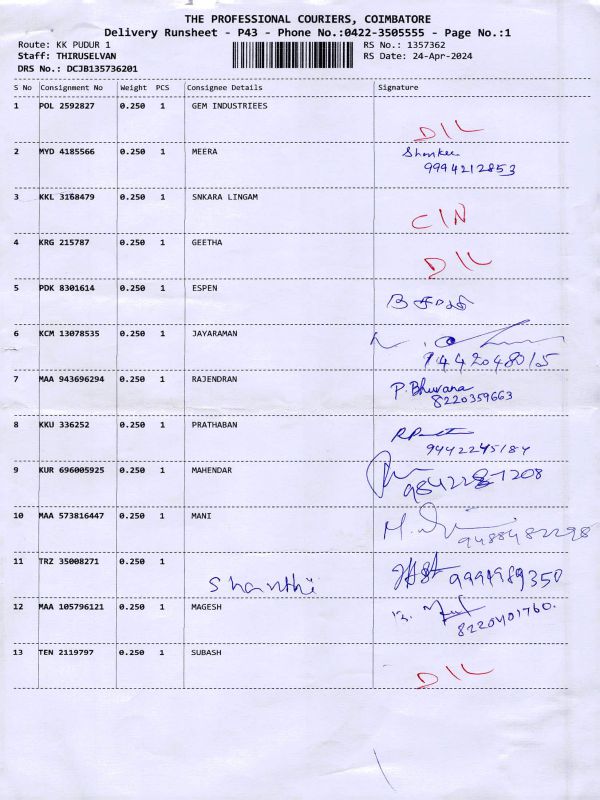 THE PROFESSIONAL COURIERS, COIMBATORE
Delivery Runsheet - P43 - Phone No.:0422-3505555 - Page No.:1
Route: KK PUDUR 1 RS No.: 1357362
Staff: THIRUSELVAN RS Date: 24-Apr-2024
DRS No.: DCJB135736201
S No Consignment No Weight PCS Consignee Details Signature
1 POL 2592827 0.250 1 GEM INDUSTRIEES
D/L
2 MYD 4185566 0.250 1 MEERA
9994212853
3 KKL 3168479 0.250 1 SNKARA LINGAM
C/N
4 KRG 215787 0.250 1 GEETHA
D/L
5 PDK 8301614 0.250 1 ESPEN
6 KCM 13078535 0.250 1 JAYARAMAN
9442048015
7 MAA 943696294 0.250 1 RAJENDRAN
P. Bhuvana
8220359663
8 KKU 336252 0.250 1 PRATHABAN
9442245184
9 KUR 696005925 0.250 1 MAHENDAR
9842287208
10 MAA 573816447 0.250 1 MANI
9488482298
11 TRZ 35008271 0.250 1
Shanthi 9994989350
12 MAA 105796121 0.250 1 MAGESH
8220401760.
13 TEN 2119797 0.250 1 SUBASH
D/L